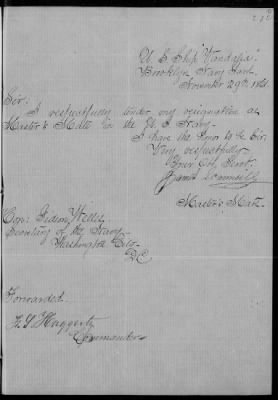 U. S. Ship "Vandalia"
Brooklyn Navy Yard
November 29th 1861
Sir:
I respectfully tender my resignation as
Master's Mate in the U. S. Navy.
I have the honor to be Sir:
Very respectfully
Your Obt Servt.
James
Master's Mate.
Hon: Gideon Welles
Secretary of the Navy
Washington City
D.C.
Forwarded.
F. S. Haggerty
Commander